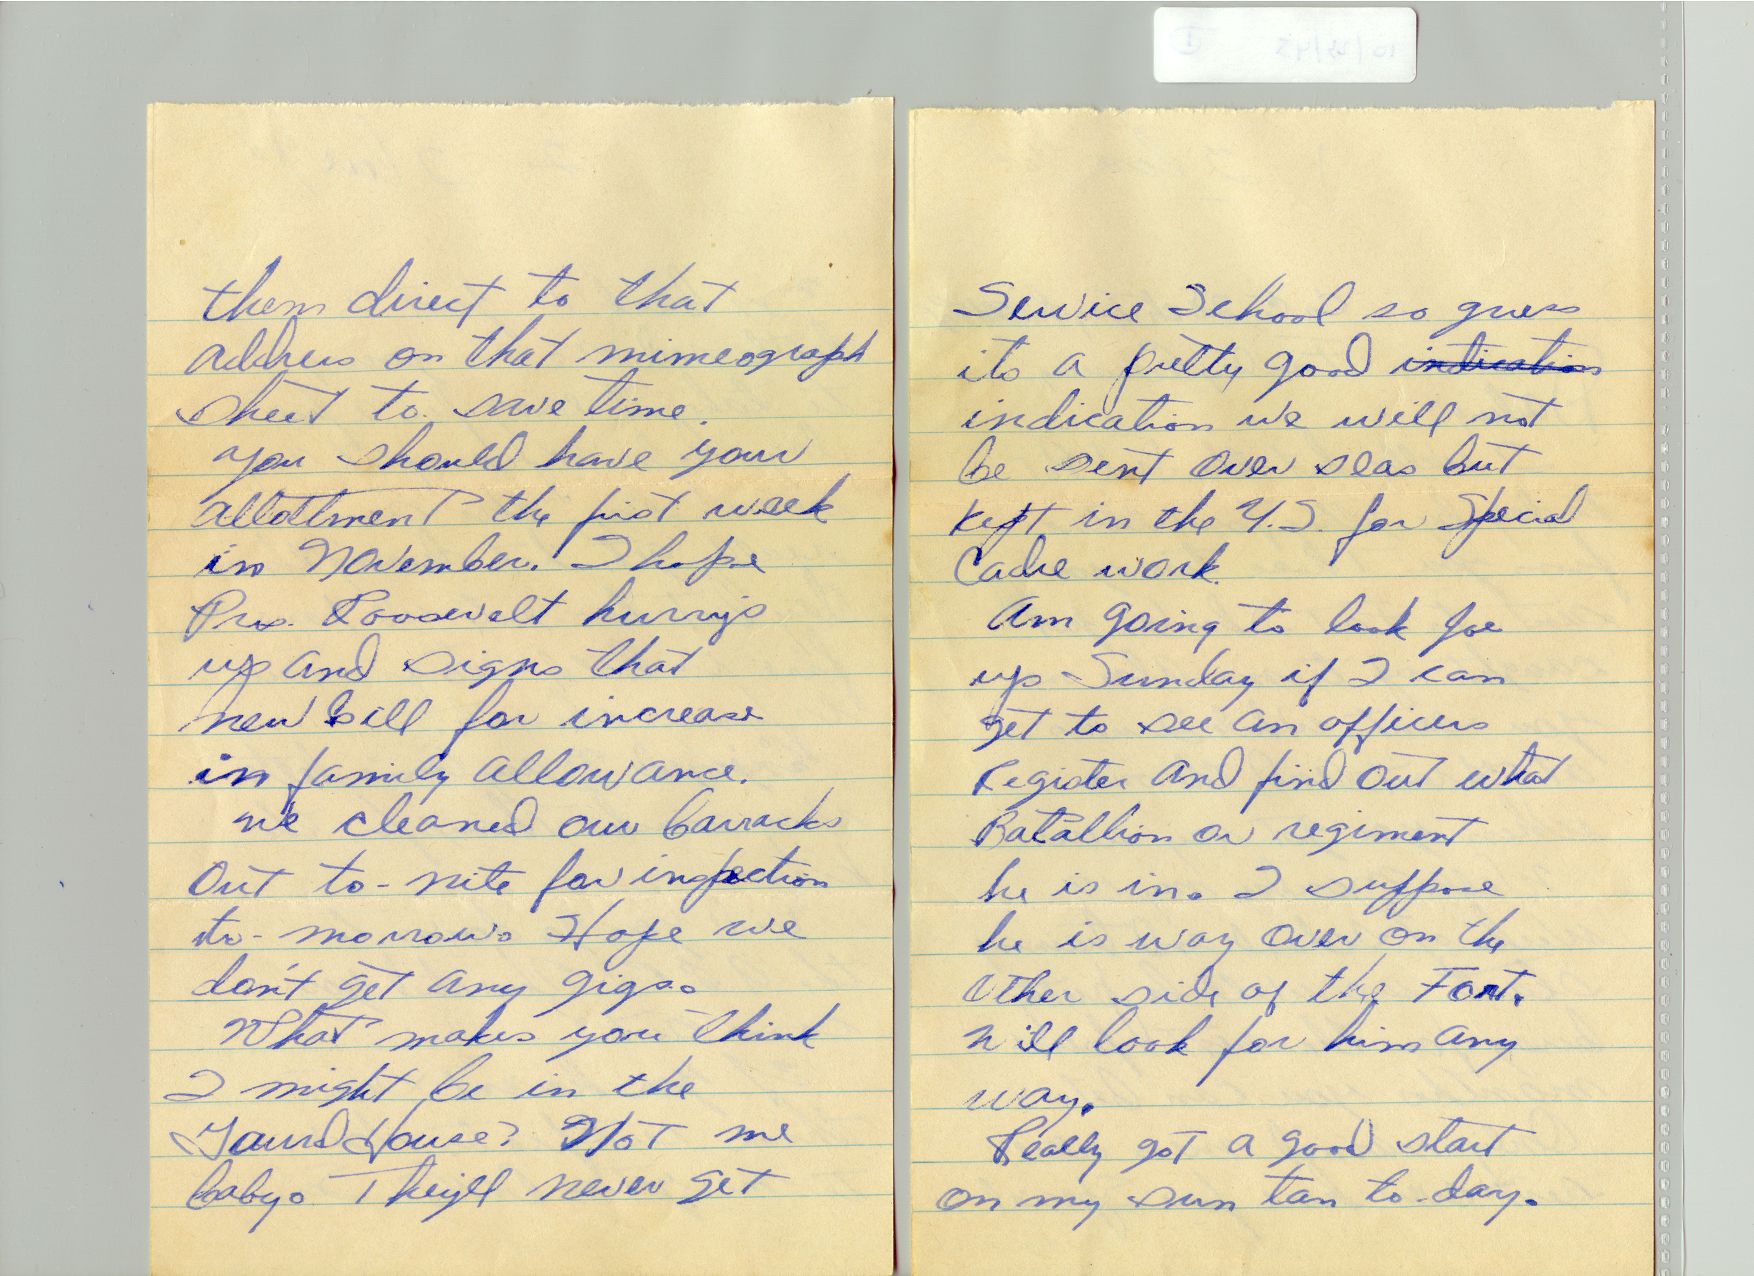 them direct to that
address on that mimeograph
sheet to save time.
you should have your
allottment the first week
in November. I hope
Pres. Roosevelt hurrys
up and signs that
new bill for increase
in family allowance.
we cleaned our barracks
out to-nite for inspection
to-morrow. Hope we
don't get any gigs.
What makes you think
I might be in the
Gaurd House? Not me
baby. They'll never get
Service School so guess
its a pretty good indication
indication we will not
be sent over seas but
kept in the U.S. for Special
Cadre work.
Am going to look Joe
up Sunday if I can
get to see an officers
Register and find out what
Batallion or regiment
he is in. I suppose
he is way over on the
other side of the Fort.
Will look for him any
way.
Really got a good start
on my sun tan to-day.